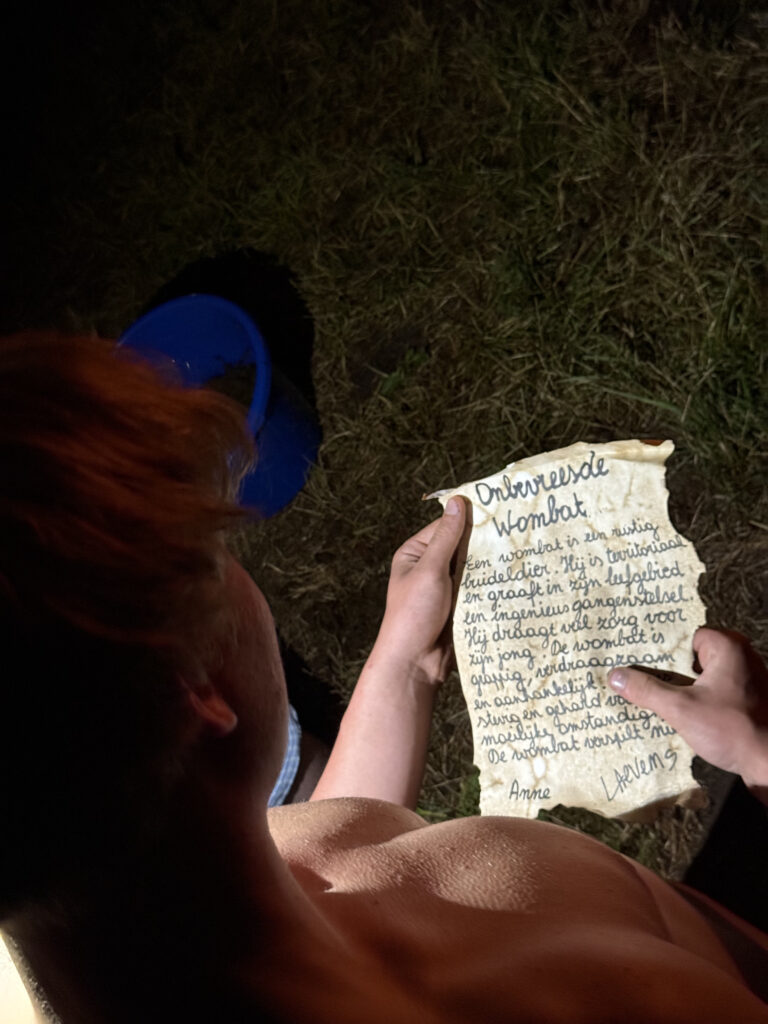 Onbevreesde
Wombat
Een wombat is een rustig
buideldier. Hij is territoriaal
en graaft in zijn leefgebied
een ingenieus gangenstelsel.
Hij draagt veel zorg voor
zijn jong. De wombat is
grappig, verdraagzaam
en aanhankelijk
stevig en gehard
moeilijke omstandig
De wombat verspilt
Anne LAEVENS